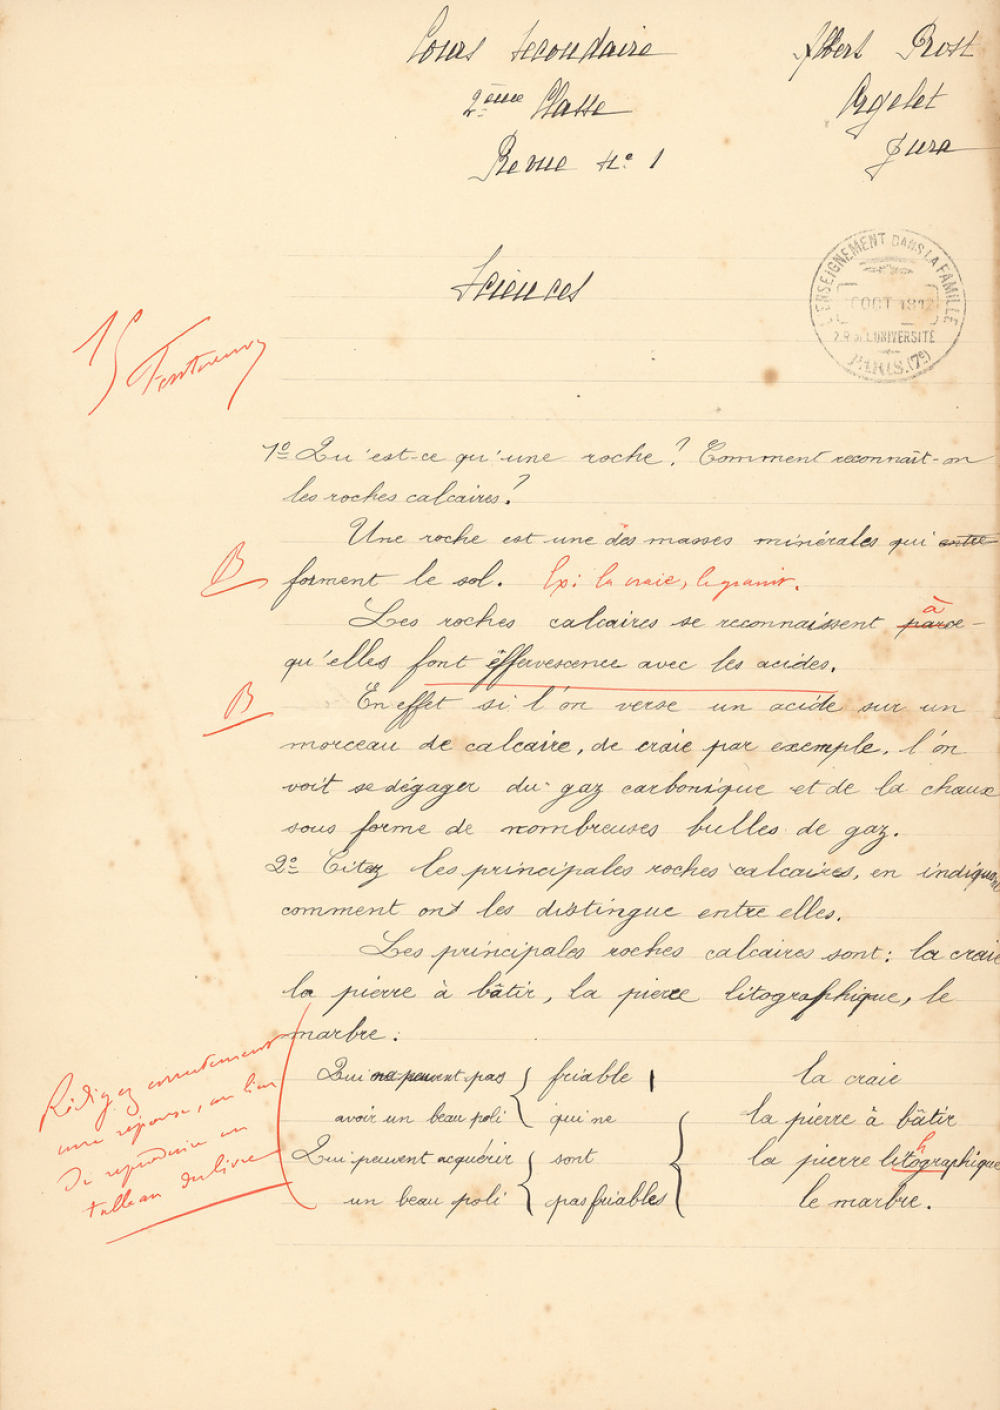 Cours Secondaire
2ème Classe
Revue No 1
Albert Prost
Orgelet
Jura
Sciences
L'ENSEIGNEMENT DANS LA FAMILLE
OCT
L'UNIVERSITÉ
PARIS (7e)
15
1º Qu'est-ce qu'une roche? Comment reconnaît-on
les roches calcaires?
Une roche est une des masses minérales qui entre
B forment le sol. Ex: la craie, le granit.
à
Les roches calcaires se reconnaissent parce-
qu'elles font effervescence avec les acides.
B En effet si l'on verse un acide sur un
morceau de calcaire, de craie par exemple, l'on
voit se dégager du gaz carbonique et de la chaux
sous forme de nombreuses bulles de gaz.
2º Citez les principales roches calcaires, en indiquant
comment on les distingue entre elles.
Les principales roches calcaires sont: la craie
la pierre à bâtir, la pierre litographique, le
marbre:
Rédigez correctement
une réponse, au lieu
de reproduire un
tableau du livre
Qui ne peuvent pas { friable la craie
avoir un beau poli { qui ne { la pierre à bâtir
Qui peuvent acquérir { sont { la pierre lithographique
un beau poli { pas friables { le marbre.